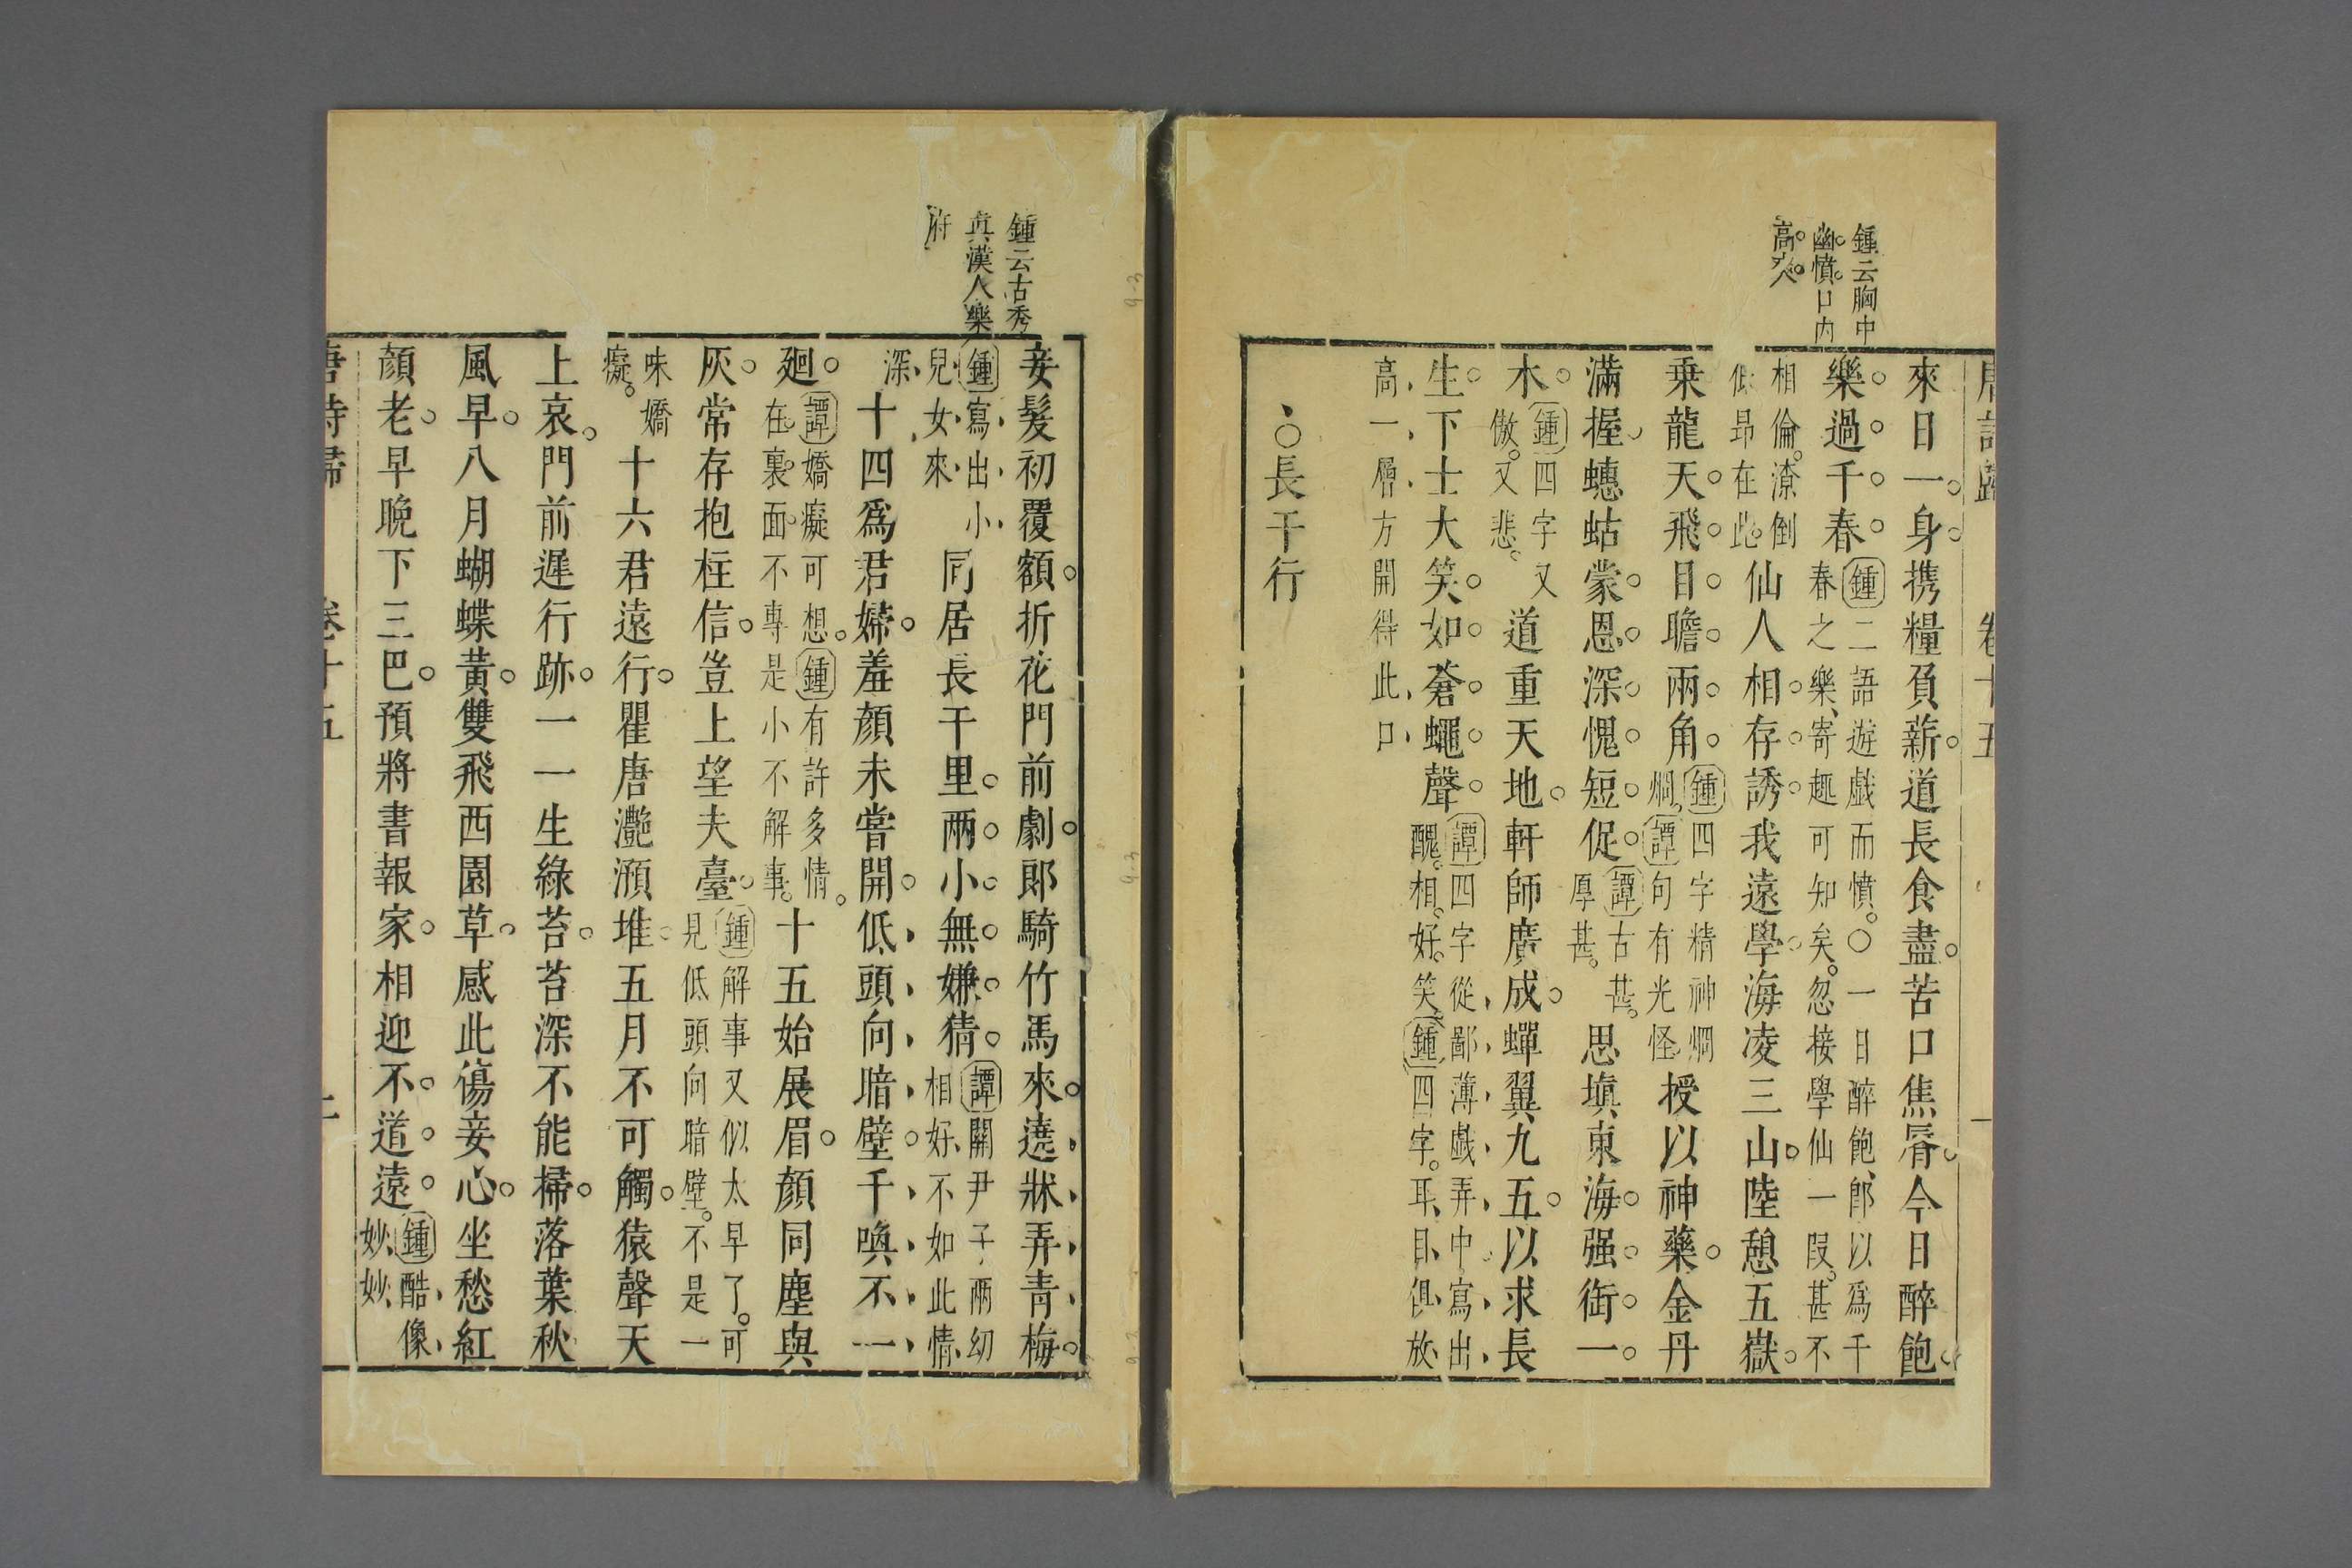 唐詩歸　卷十五　一
鍾云胸中
幽憤口内
高
來日一身携糧負薪道長食盡苦口焦脣今日醉飽
樂過千春鍾二語遊戲而憤○一日醉飽郎以爲千
春之樂寄趣可知矣忽接學仙一叚甚不
相倫潦倒
低昂在此仙人相存誘我遠學海凌三山陸憩五嶽
乘龍天飛目瞻兩角鍾四字精神烱
烱譚句有光怪授以神藥金丹
滿握蟪蛄蒙恩深愧短促譚古甚
厚甚思塡東海强銜一
木鍾四字又
傲又悲道重天地軒師廣成蟬翼九五以求長
生下士大笑如蒼蠅聲譚四字從鄙薄戲弄中寫出
醜相好笑鍾四字耳目俱放
高一層方開得此口
○長干行
鍾云古秀
眞漢人樂
府
妾髮初覆額折花門前劇郎騎竹馬來遶牀弄青梅
鍾寫出小
兒女來同居長干里兩小無嫌猜譚關尹子兩幼
相好不如此情
深十四爲君婦羞顔未嘗開低頭向暗壁千喚不一
廻譚嬌癡可想鍾有許多情
在裏面不專是小不解事十五始展眉顔同塵與
灰常存抱柱信豈上望夫臺鍾解事又似太早了可
見低頭向暗壁不是一
味嬌
癡十六君遠行瞿唐灧澦堆五月不可觸猿聲天
上哀門前遲行跡一一生綠苔苔深不能掃落葉秋
風早八月蝴蝶黃雙飛西園草感此傷妾心坐愁紅
顔老早晚下三巴預將書報家相迎不道遠鍾酷像
妙妙
唐詩歸　卷十五　二